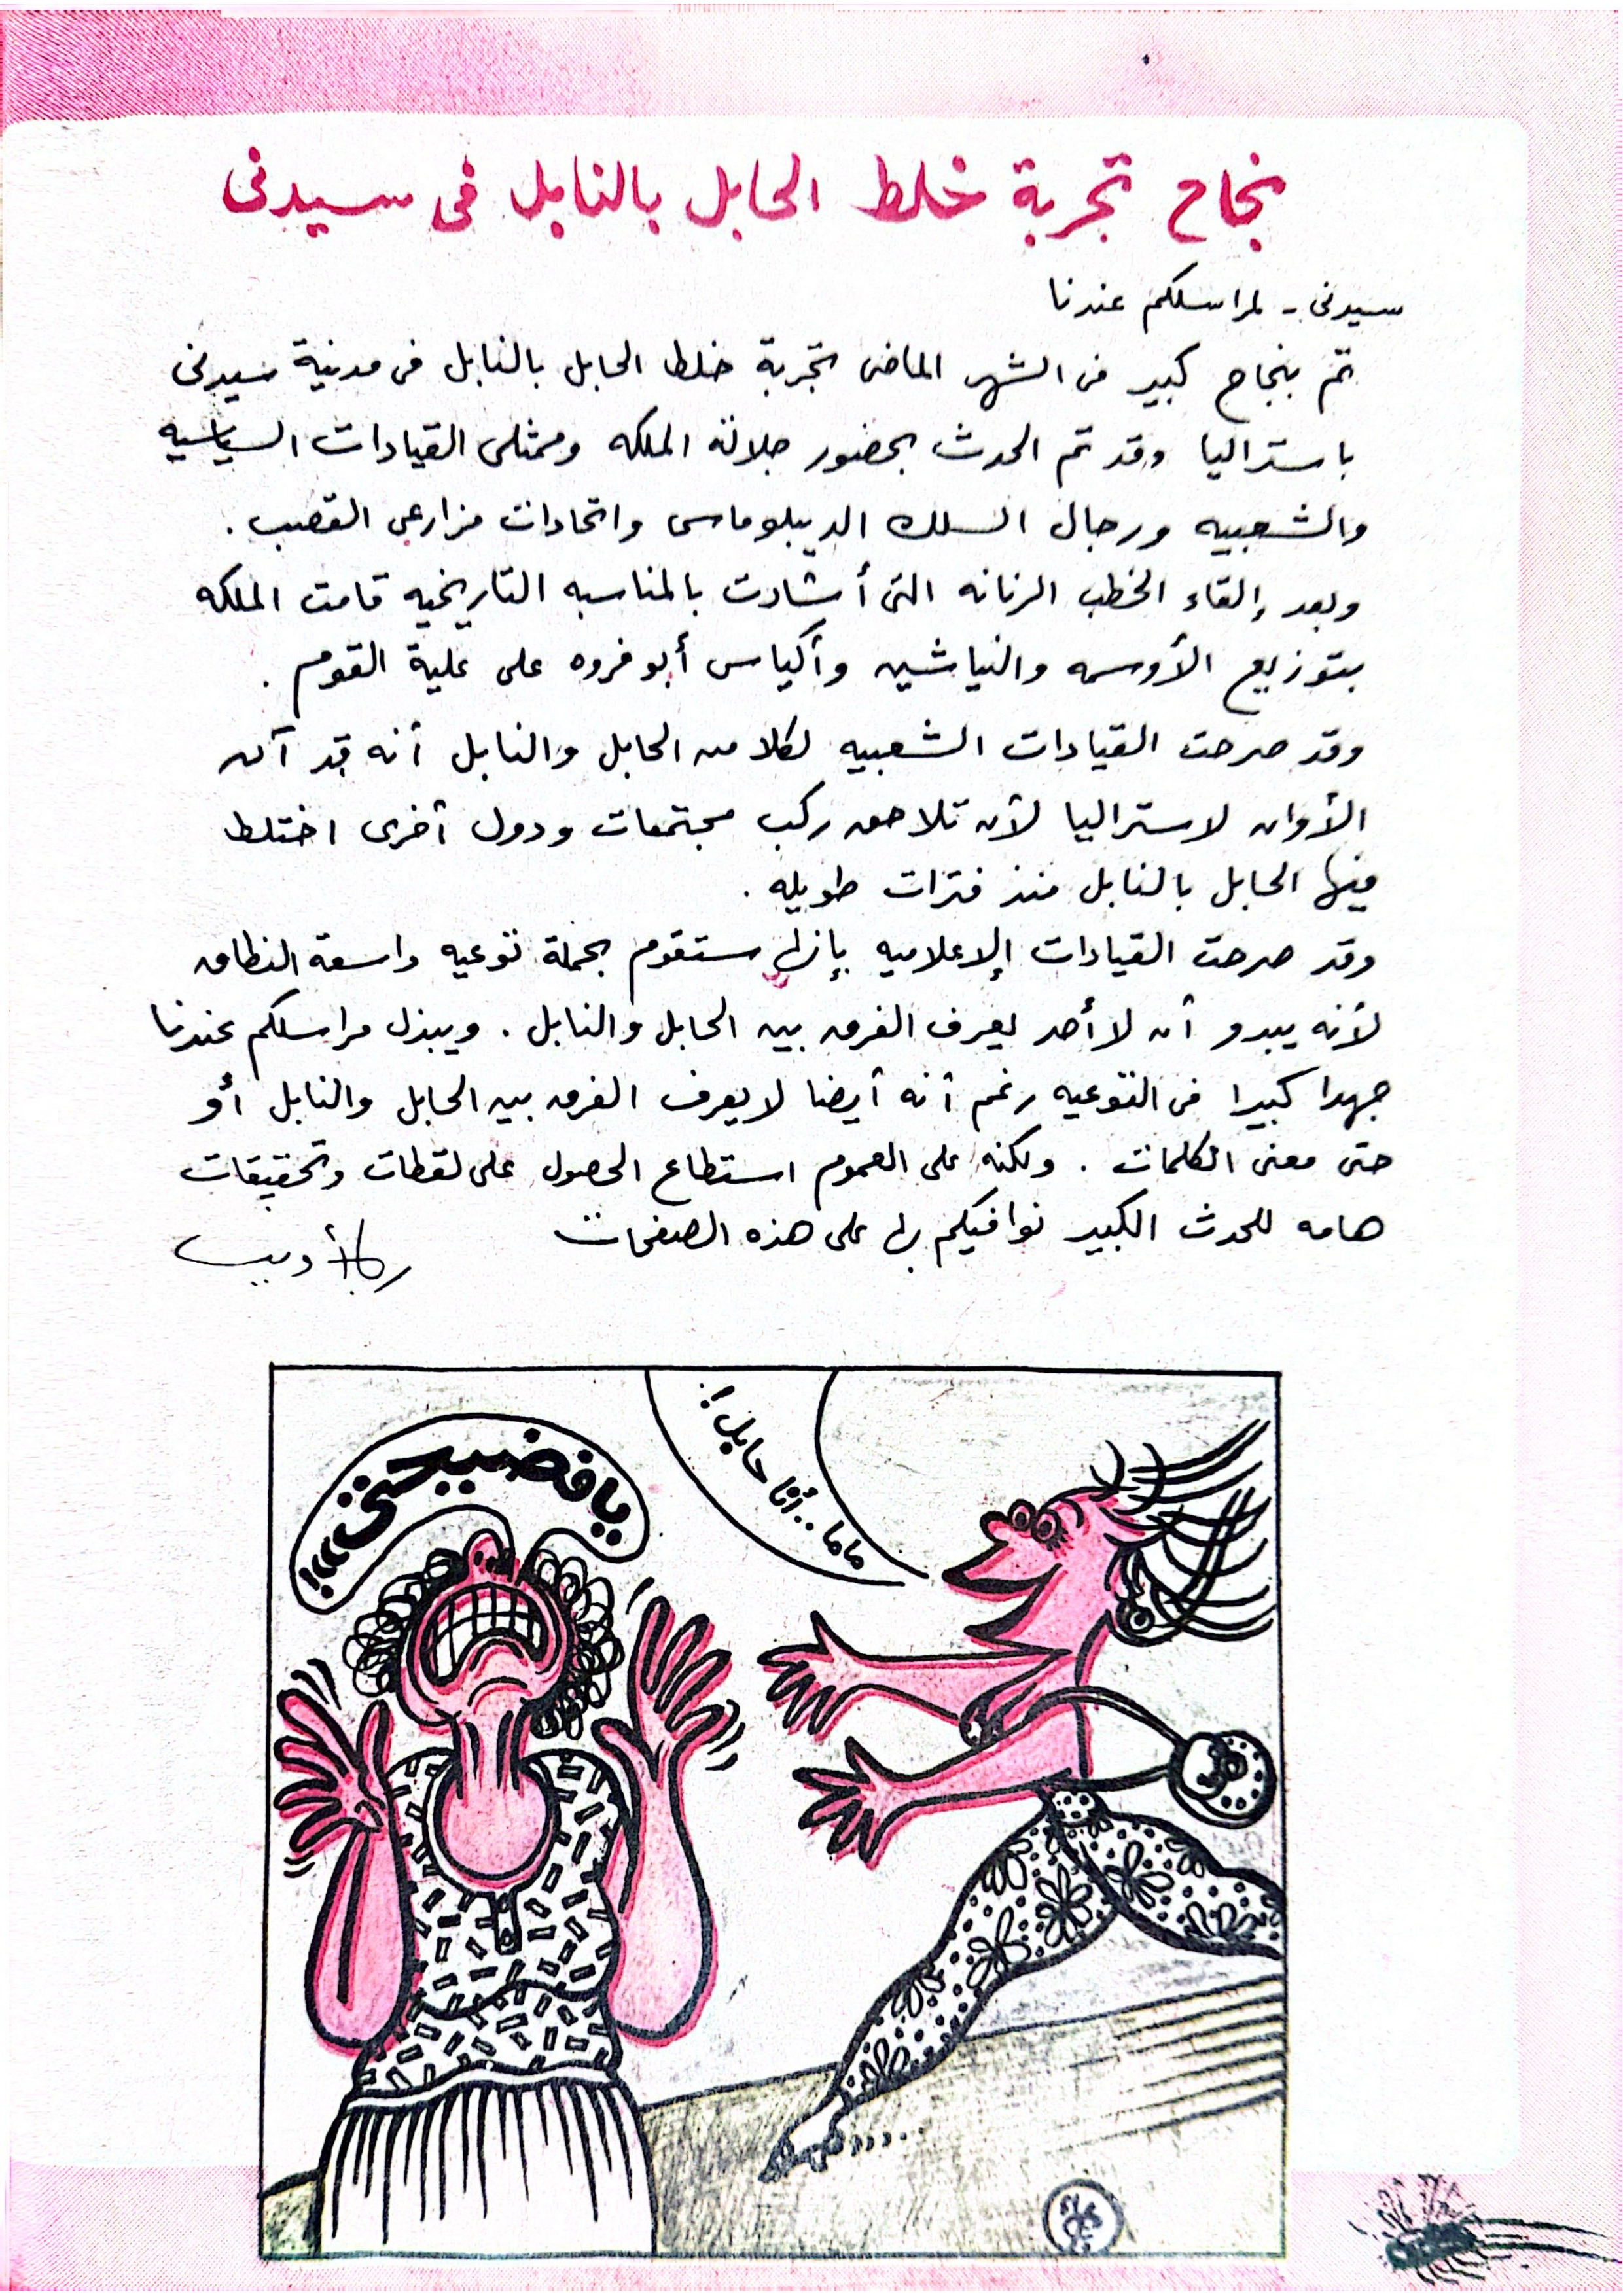 نجاح تجربة خلط الحابل بالنابل فى سيدنى
سيدنى - لمراسلكم عندنا
تم بنجاح كبير فى الشهر الماضى تجربة خلط الحابل بالنابل فى مدينة سيدنى
باستراليا وقد تم الحدث بحضور جلالة الملكه وممثلى القيادات السياسيه
والشعبيه ورجال السلك الديبلوماسى واتحادات مزارعى القصب .
وبعد إلقاء الخطب الرنانه التى أشادت بالمناسبه التاريخيه قامت الملكه
بتوزيع الأوسمه والنياشين وأكياس أبو فروه على علية القوم .
وقد صرحت القيادات الشعبيه لكلا من الحابل والنابل أنه قد آن
الأوان لاستراليا لأن تلاحق ركب مجتمعات ودول أخرى اختلط
فيها الحابل بالنابل منذ فترات طويله .
وقد صرحت القيادات الإعلاميه بإنها ستقوم بحملة توعيه واسعة النطاق
لأنه يبدو أن لا أحد يعرف الفرق بين الحابل والنابل . ويبذل مراسلكم عندنا
جهدا كبيرا فى التوعيه رغم أنه أيضا لا يعرف الفرق بين الحابل والنابل أو
حتى معنى الكلمات . ولكنه على العموم استطاع الحصول على لقطات وتحقيقات
هامه للحدث الكبير نوافيكم بها على هذه الصفحات
ماما .. أنا حابل !
يا فضيحتى !!!